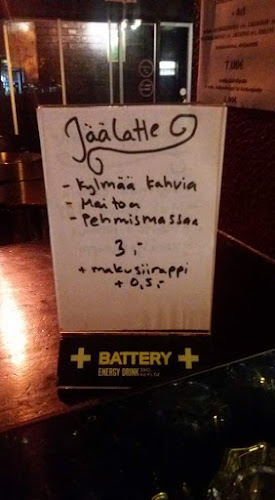 Jäälatte
- Kylmää kahvia
- Maitoa
- Pehmismassaa
3,-
+ makusiirappi
+ 0,5,-
+ BATTERY +
ENERGY DRINK
7,00€